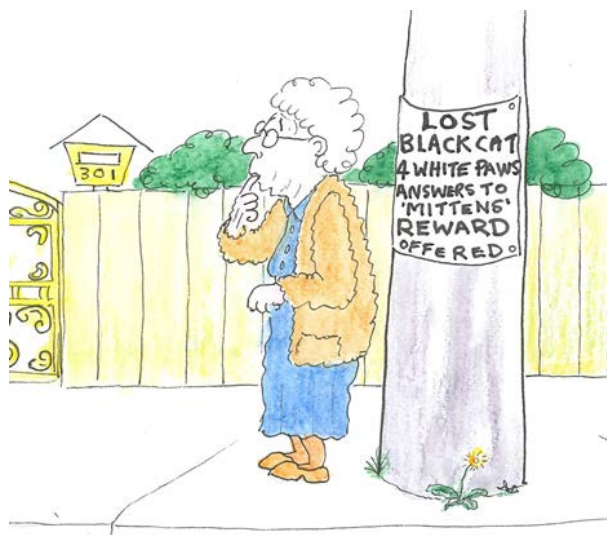 301
LOST
BLACK CAT
4 WHITE PAWS
ANSWERS TO
'MITTENS'
REWARD
OFFERED